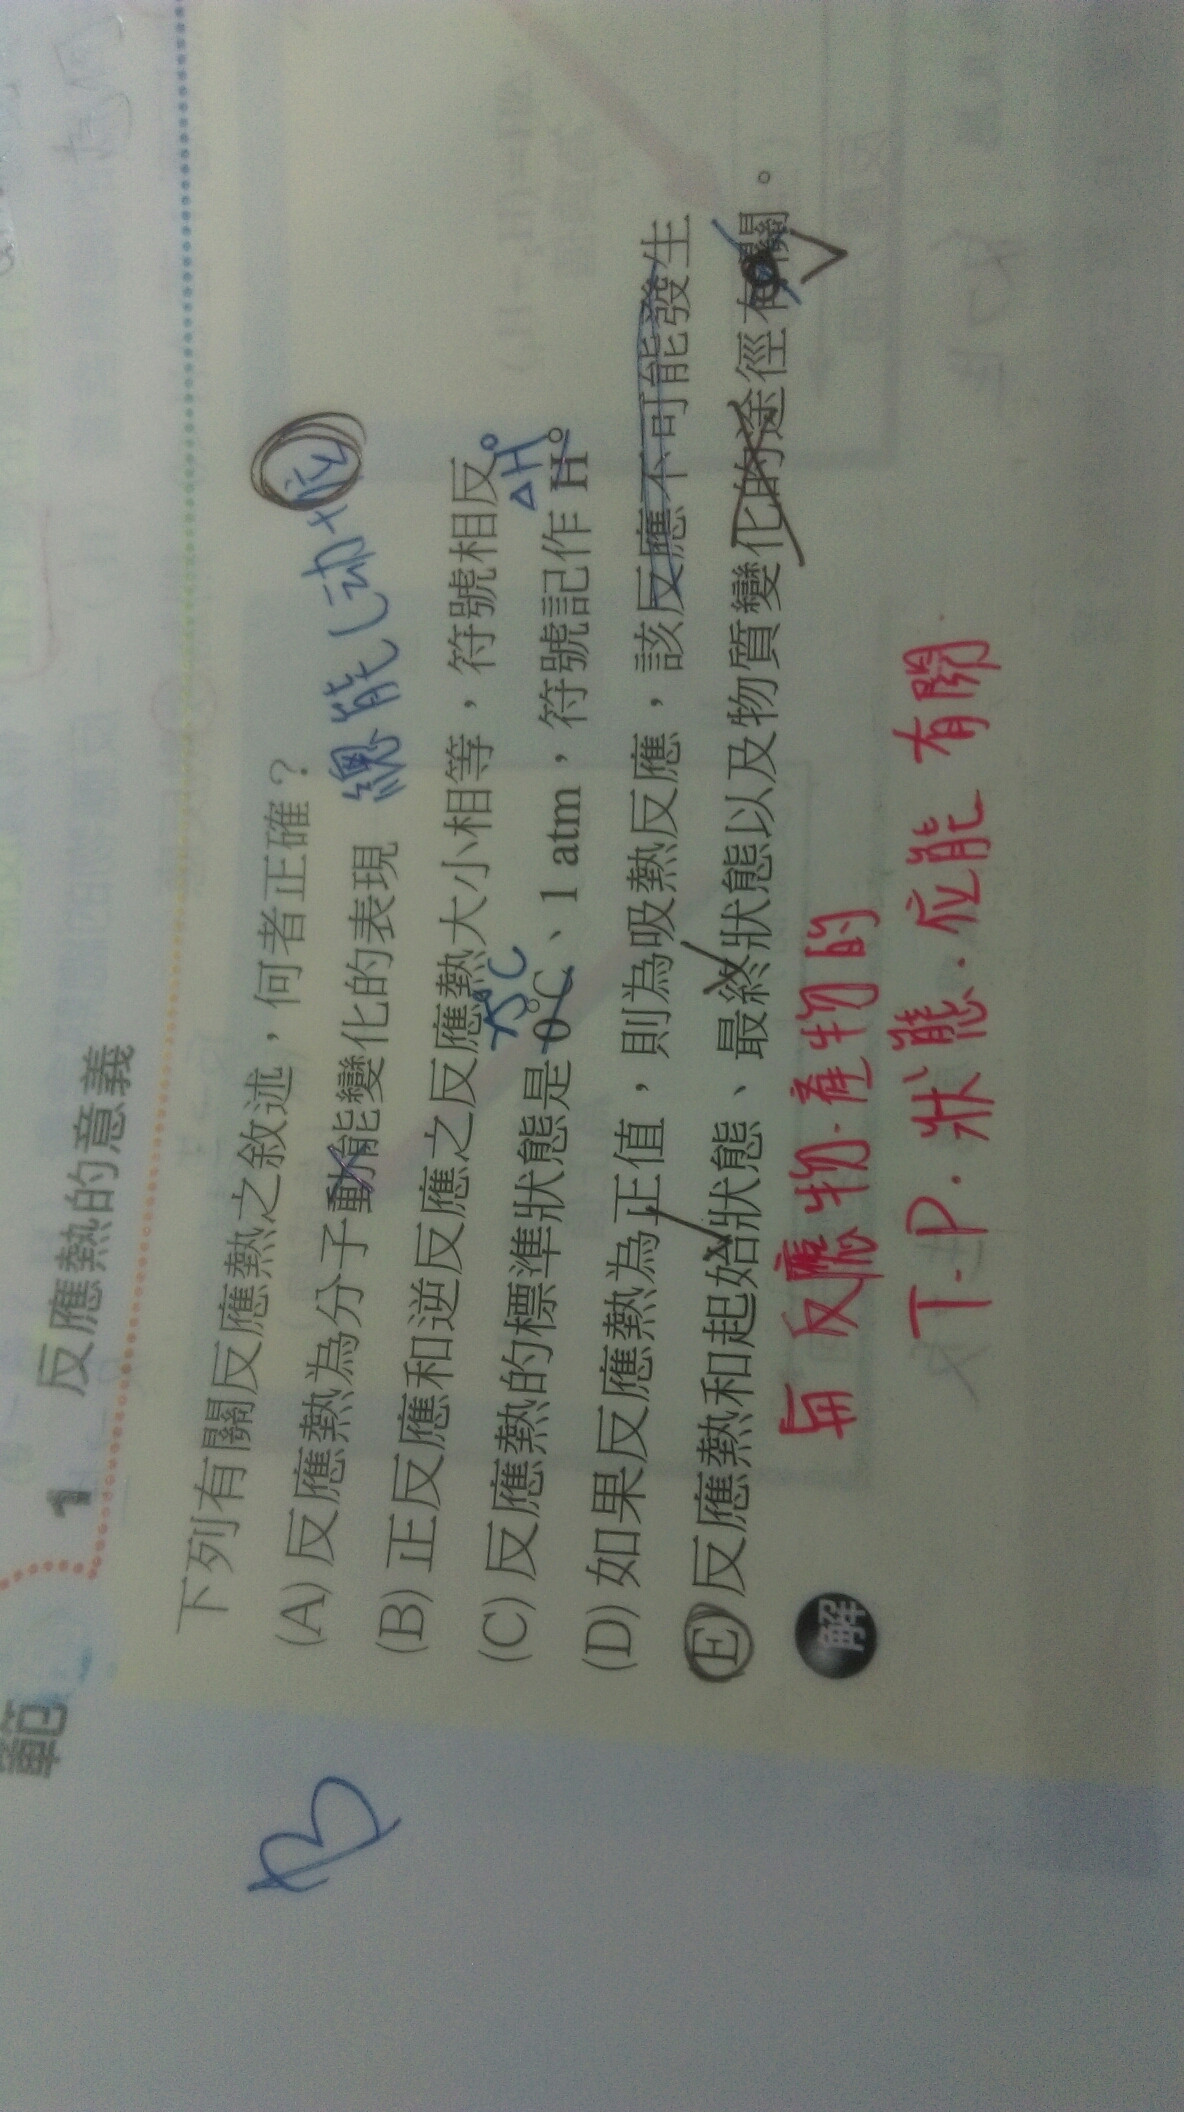 範
1 反應熱的意義
下列有關反應熱之敘述，何者正確？
(A) 反應熱為分子動能變化的表現 總能(动+位)
(B) 正反應和逆反應之反應熱大小相等，符號相反
25°C ΔH°
(C) 反應熱的標準狀態是 0°C、1 atm，符號記作 H°
(D) 如果反應熱為正值，則為吸熱反應，該反應不可能發生
(E) 反應熱和起始狀態、最終狀態以及物質變化的途徑有關。
解
與反應物.產物的
T.P.狀態.位能有関
B